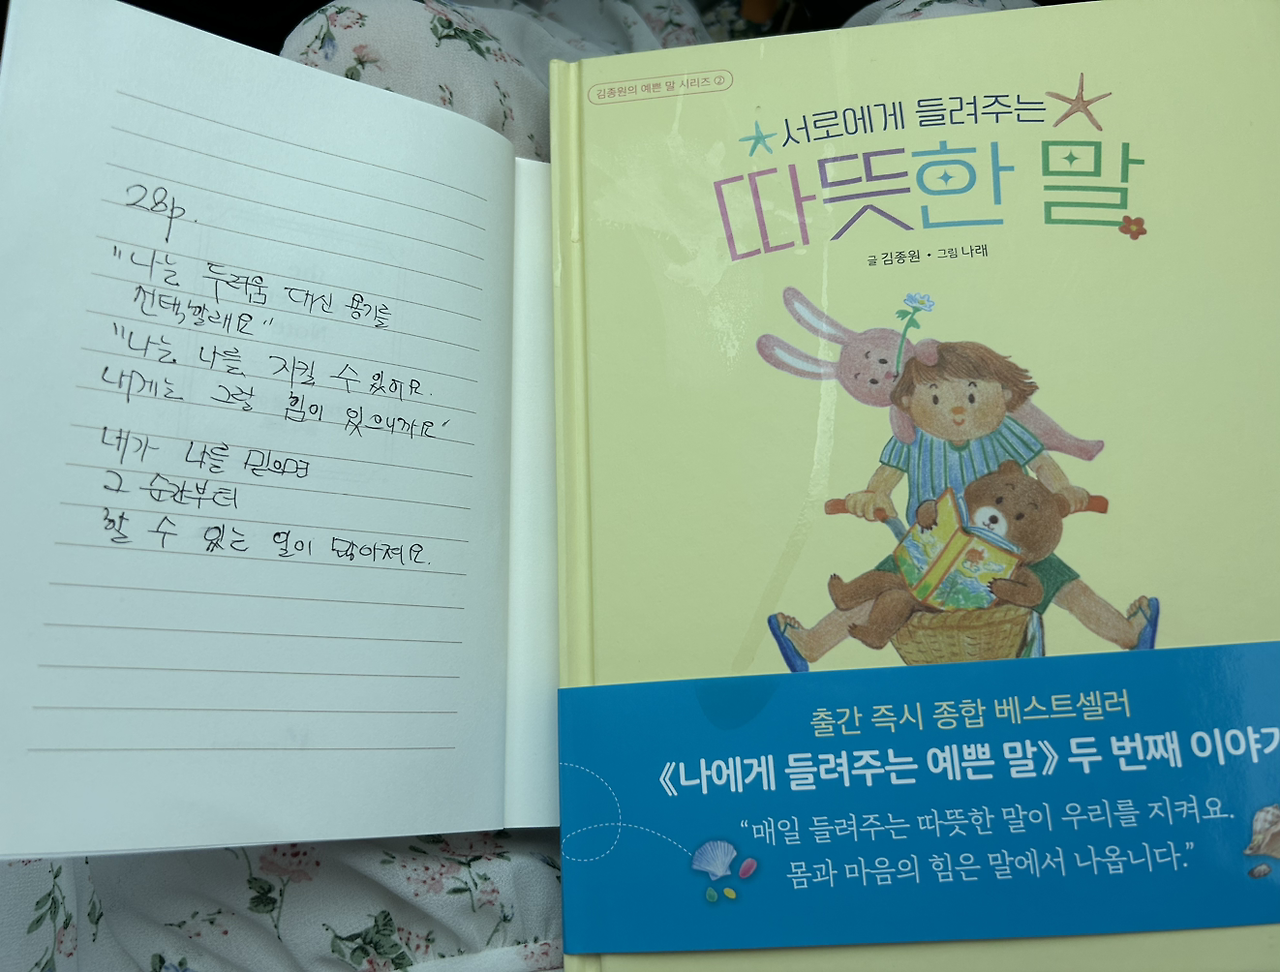 28p.
"나는 두려움 대신 용기를
선택할래요"
"나는 나를 지킬 수 있어요.
내게는 그럴 힘이 있으니까요"
내가 나를 믿으면
그 순간부터
할 수 있는 일이 많아져요.
김종원의 예쁜 말 시리즈 ②
서로에게 들려주는
따뜻한 말
글 김종원 • 그림 나래
출간 즉시 종합 베스트셀러
《나에게 들려주는 예쁜 말》 두 번째 이야기
"매일 들려주는 따뜻한 말이 우리를 지켜요.
몸과 마음의 힘은 말에서 나옵니다."